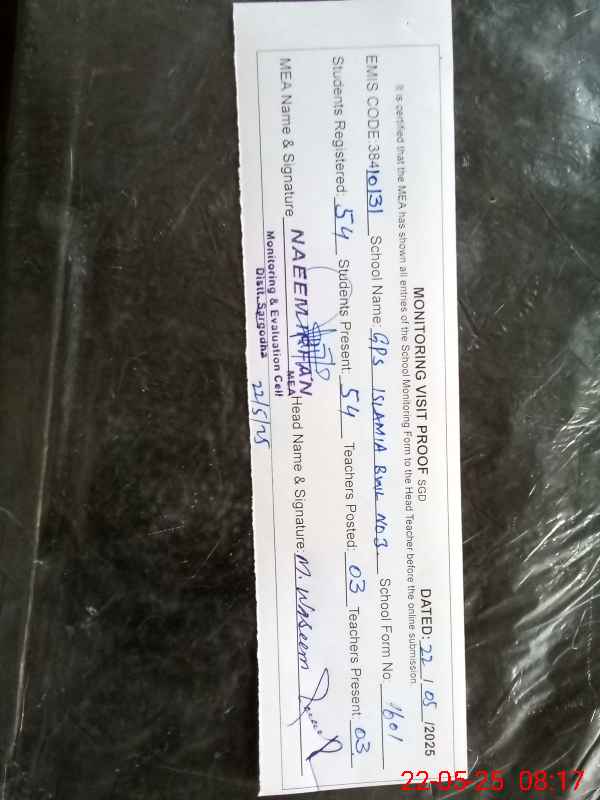 MONITORING VISIT PROOF SGD DATED: 22 / 05 /2025
It is certified that the MEA has shown all entries of the School Monitoring Form to the Head Teacher before the online submission.
EMIS CODE:38410131 School Name: GPS ISLAMIA BWL NO3 School Form No: 1601
Students Registered: 54 Students Present: 54 Teachers Posted: 03 Teachers Present: 03
MEA Name & Signature NAEEM Head Name & Signature: M. Waseem
MEA
Monitoring & Evaluation Cell
Distt. Sargodha
22/5/25
22-05-25 08:17